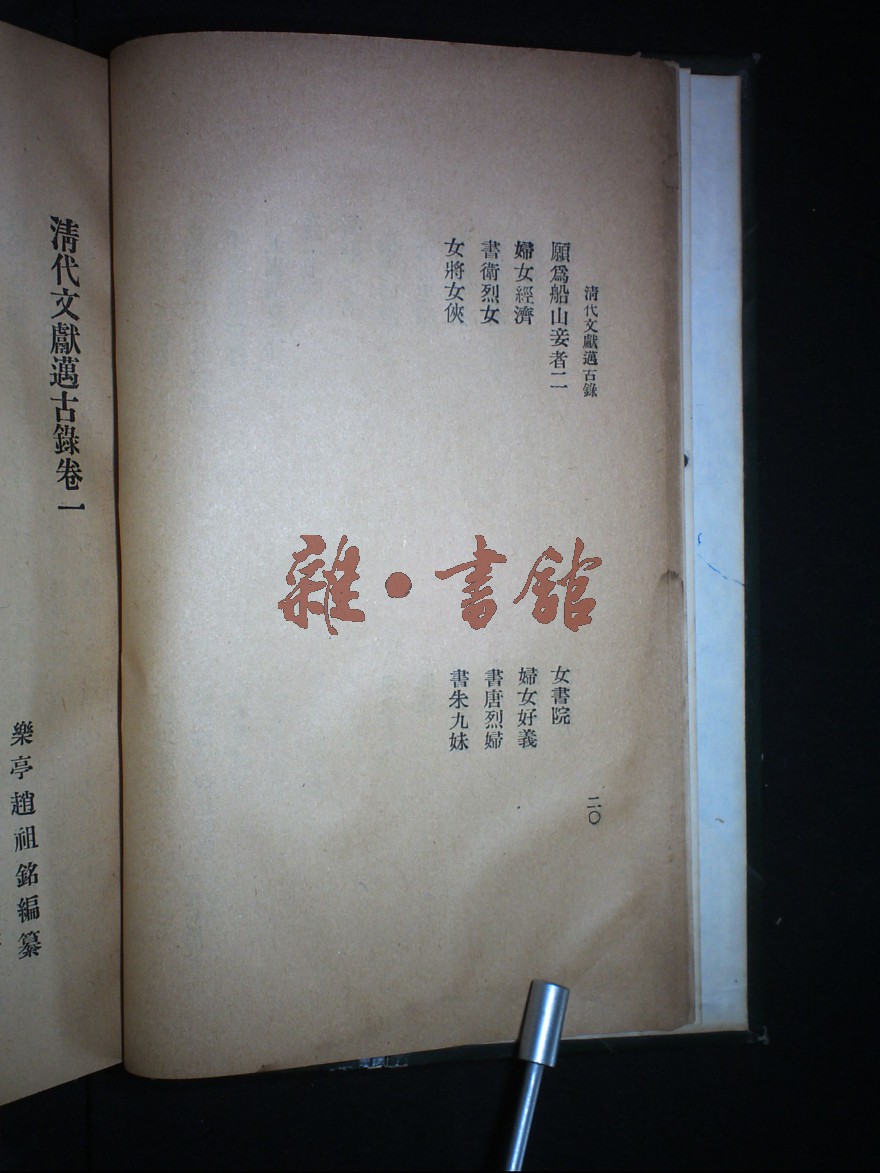 清代文獻邁古錄
願爲船山妾者二
女書院
婦女經濟
婦女好義
書衛烈女
書唐烈婦
女將女俠
書朱九妹
二〇
雜·書館
清代文獻邁古錄卷一
樂亭趙祖銘編纂